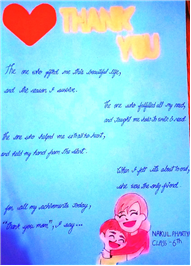 THANK
YOU
The one who gifted me this beautiful life,
and the reason I survive.
The one who fulfilled all my needs,
and taught me how to write & read.
The one who helped me
and held my hand from the start.
When I felt
she was the only friend.
for all my achievements today,
"Thank you mom", I say...
NAKUL
CLASS - 6th